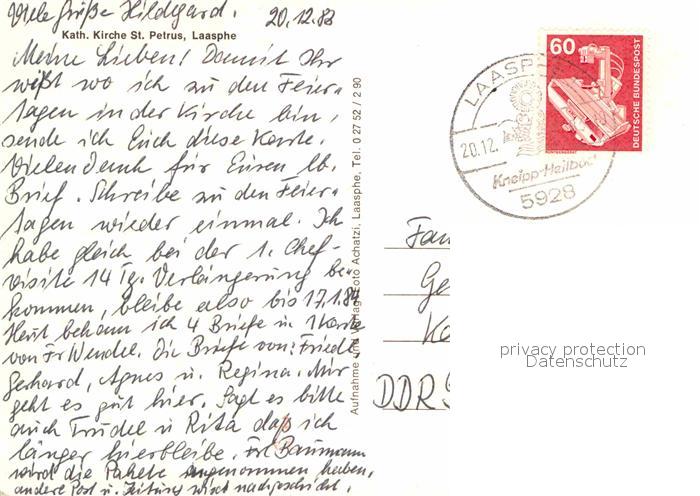 Viele Grüße Hildegard. 20.12.83
Kath. Kirche St. Petrus, Laasphe
Meine Lieben! Damit Ihr
wißt wo ich zu den Feier-
tagen in der Kirche bin,
sende ich Euch diese Karte.
Vielen Dank für Euren lb.
Brief. Schreibe zu den Feier-
tagen wieder einmal. Ich
habe gleich bei der 1. Chef-
visite 14 Tg. Verlängerung be-
kommen, bleibe also bis 17.1.84
Heut bekam ich 4 Briefe u. 1 Karte
von Fr. Wendel. Die Briefe von: Friedl.
Gerhard, Agnes u. Regina. Mir
geht es gut hier. Sagt es bitte
auch Trudel u Rita daß ich
länger hierbleibe. Frl Baumann
wird die Pakete angenommen haben,
andere Post u. Zeitung wird nachgeschickt.
Aufnahme und Verlag Foto Achatzi, Laasphe, Tel. 0 27 52 / 2 90
60
DEUTSCHE BUNDESPOST
LAASP
20.12.
Kneipp-Heilbad
5928
Fam
Ge
DDR
privacy protection
Datenschutz